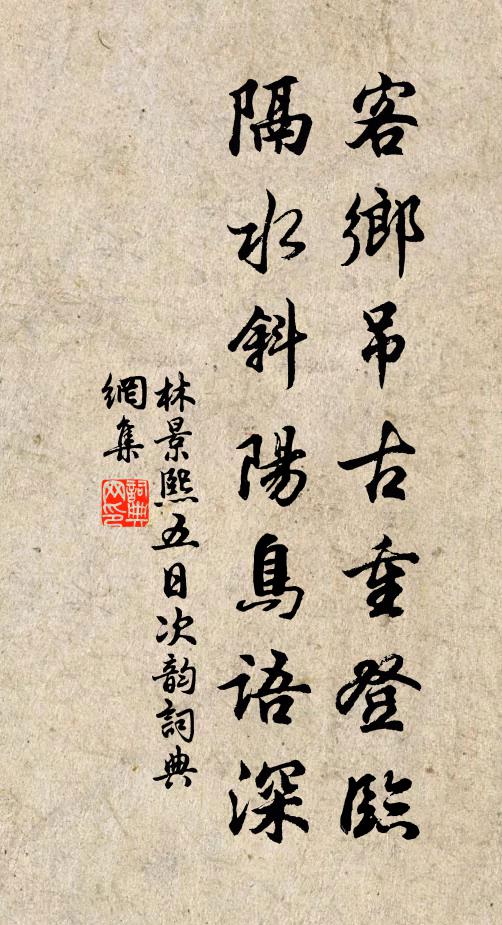 客鄉吊古重登臨
隔水斜陽鳥語深
林景熙五日次韵詞典
網集
詞典网印